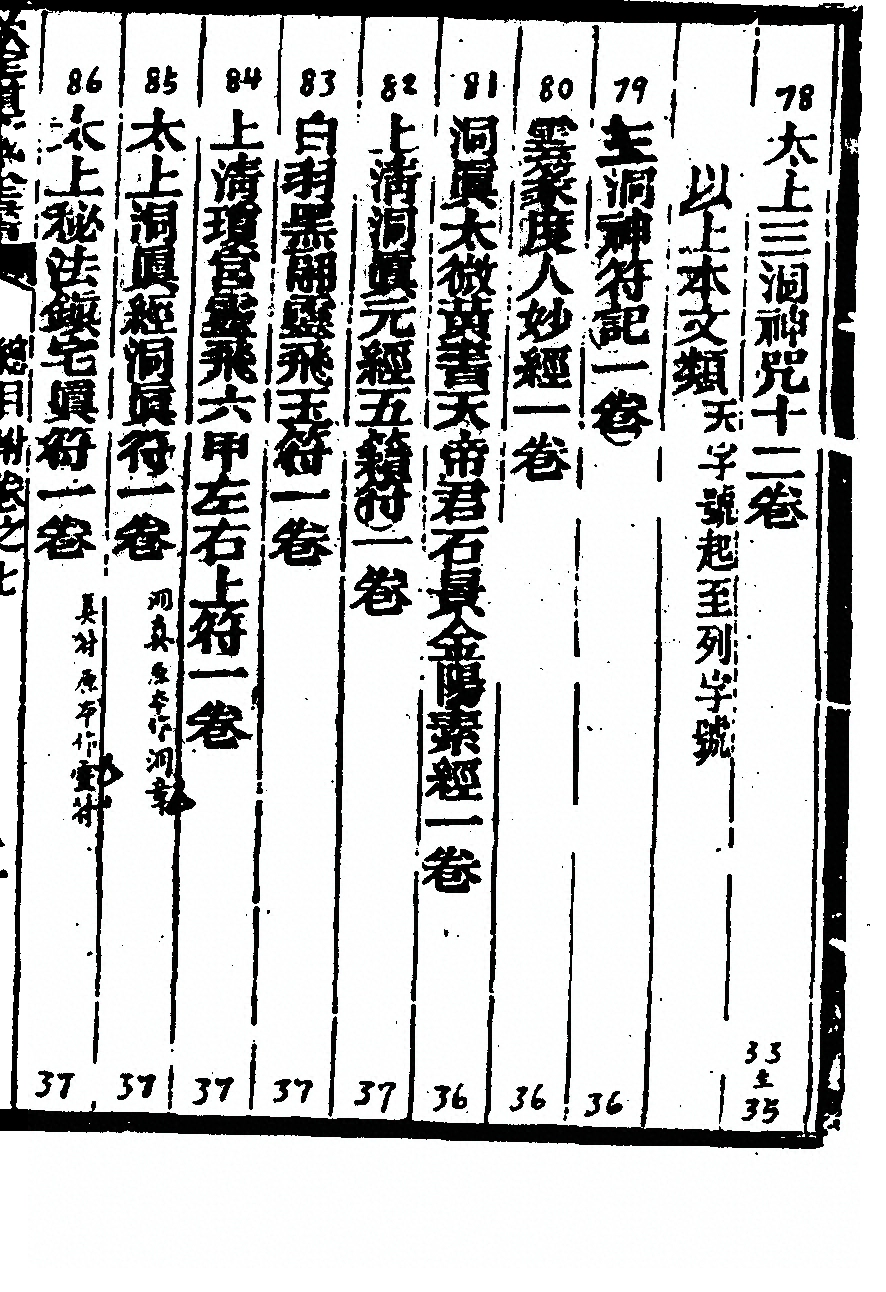 78 太上三洞神咒十二卷 33 至 35
以上本文類 天字號起至列字號
79 三洞神符記一卷 36
80 雲篆度人妙經一卷 36
81 洞眞太微黃書天帝君石景金陽素經一卷 36
82 上清洞眞元經五籍符一卷 37
83 白羽黑翮靈飛玉符一卷 37
84 上清瓊宮靈飛六甲左右上符一卷 37
85 太上洞眞經洞眞符一卷 洞眞原本作洞章 37
86 太上秘法鎭宅眞符一卷 眞符原本作靈符 37
總目 卷之七